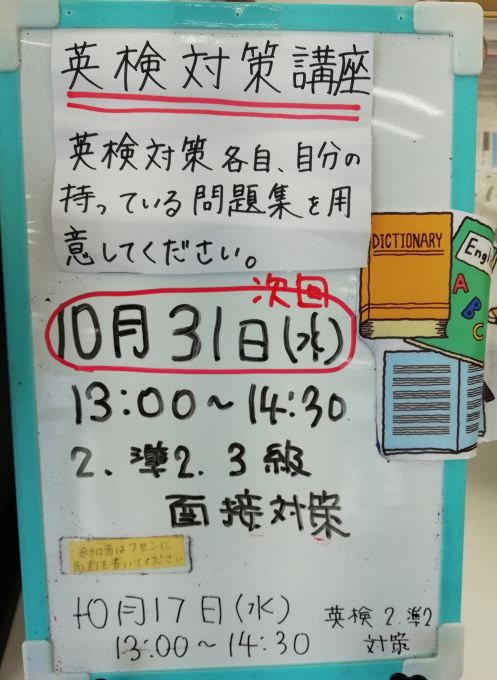 英検対策講座
英検対策各自、自分の
持っている問題集を用
意してください。
DICTIONARY
Engl
A
B
C
次回
10月31日(水)
13:00～14:30
2.準2.3級
面接対策
参加者はフセンに
名前を書いてください
10月17日(水)
英検2.準2
13:00～14:30
対策